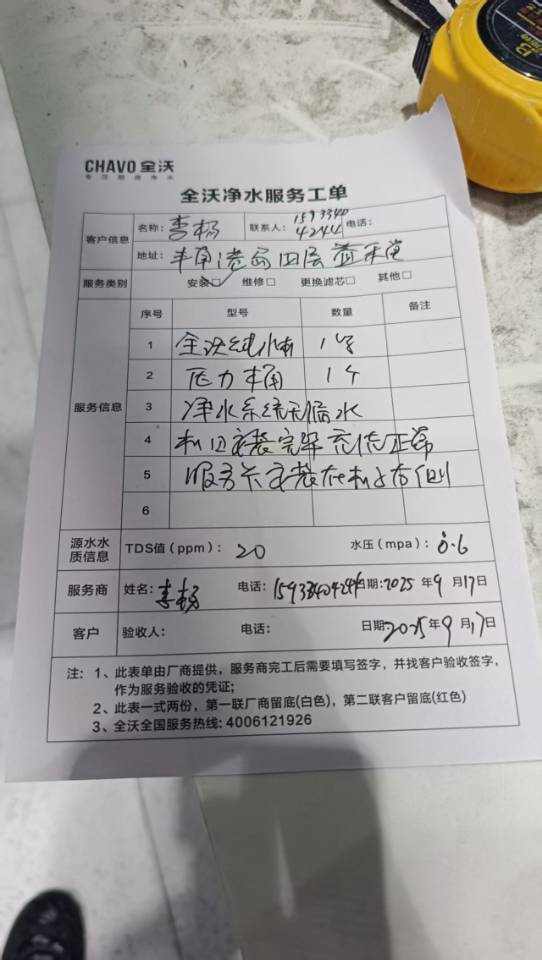 CHAVO 全沃
专注厨商净水
全沃净水服务工单
客户信息 名称: 李杨 联系人: 1593340 4244 电话:
地址: 丰南港 四层
服务类别 安装□ 维修□ 更换滤芯□ 其他□
序号 型号 数量 备注
服务信息
1 全沃纯水机 1台
2 压力桶 1个
3 净水系统无漏水
4 机口安装完毕 充使正常
5 服务卡安装在机上右侧
6
源水水质信息 TDS值(ppm): 20 水压(mpa): 0.6
服务商 姓名: 李杨 电话: 15933404244 日期: 2025年9月17日
客户 验收人: 电话: 日期: 2025年9月17日
注: 1、此表单由厂商提供,服务商完工后需要填写签字,并找客户验收签字,
作为服务验收的凭证;
2、此表一式两份,第一联厂商留底(白色),第二联客户留底(红色)
3、全沃全国服务热线: 4006121926